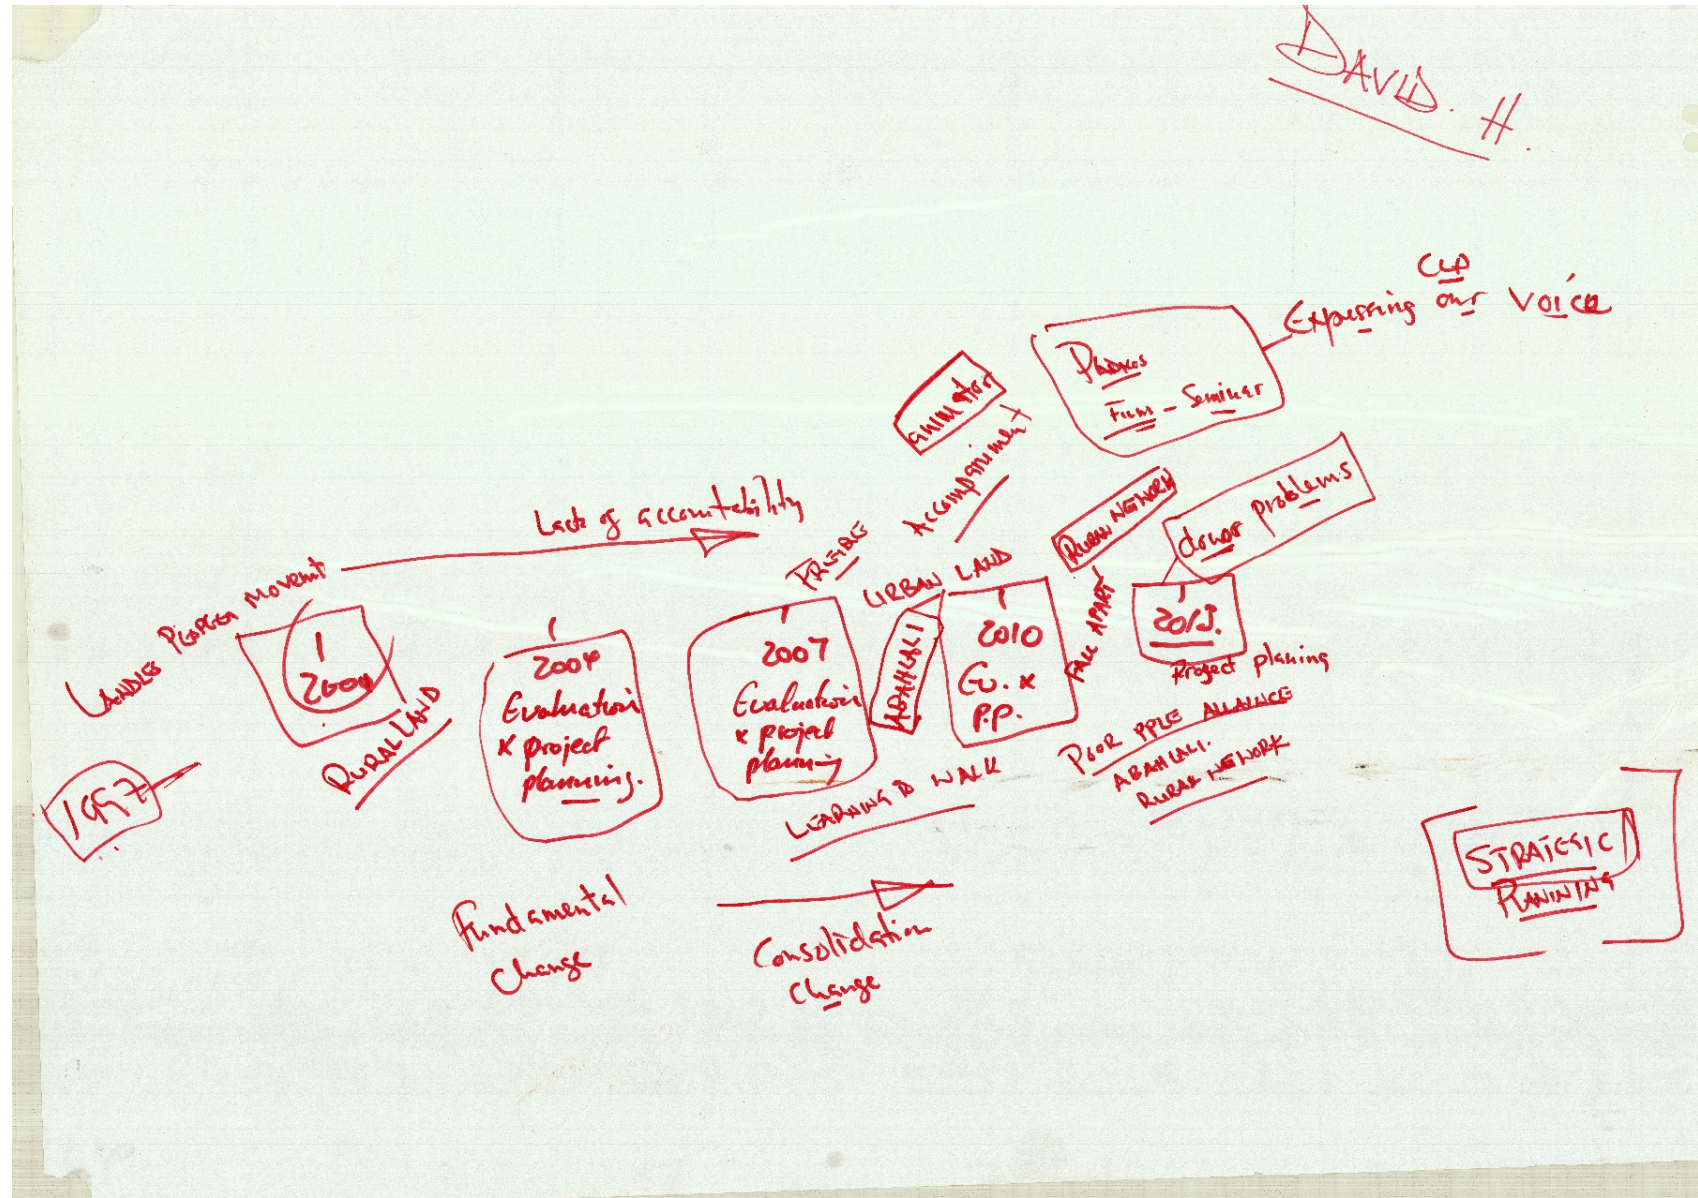 DAVID. H.
CLP
Expessing our Voice
Padkos
Film - Seminar
animator
Accompaniment
RURAL NETWORK
donor problems
Lack of accountability
URBAN LAND
LANDLES PEOPLES MOVEMT
1997
2000
RURAL LAND
2004
Evaluation
x project
planning.
2007
Evaluation
x project
planning
ABAHLALI
2010
Ev. x
P.P.
FALL APART
2013.
Project planing
POOR PPLE ALLAINCE
ABAHLALI.
RURAL NETWORK
LEARNING TO WALK
Fundamental
change
Consolidation
change
STRATEGIC
PLANINING